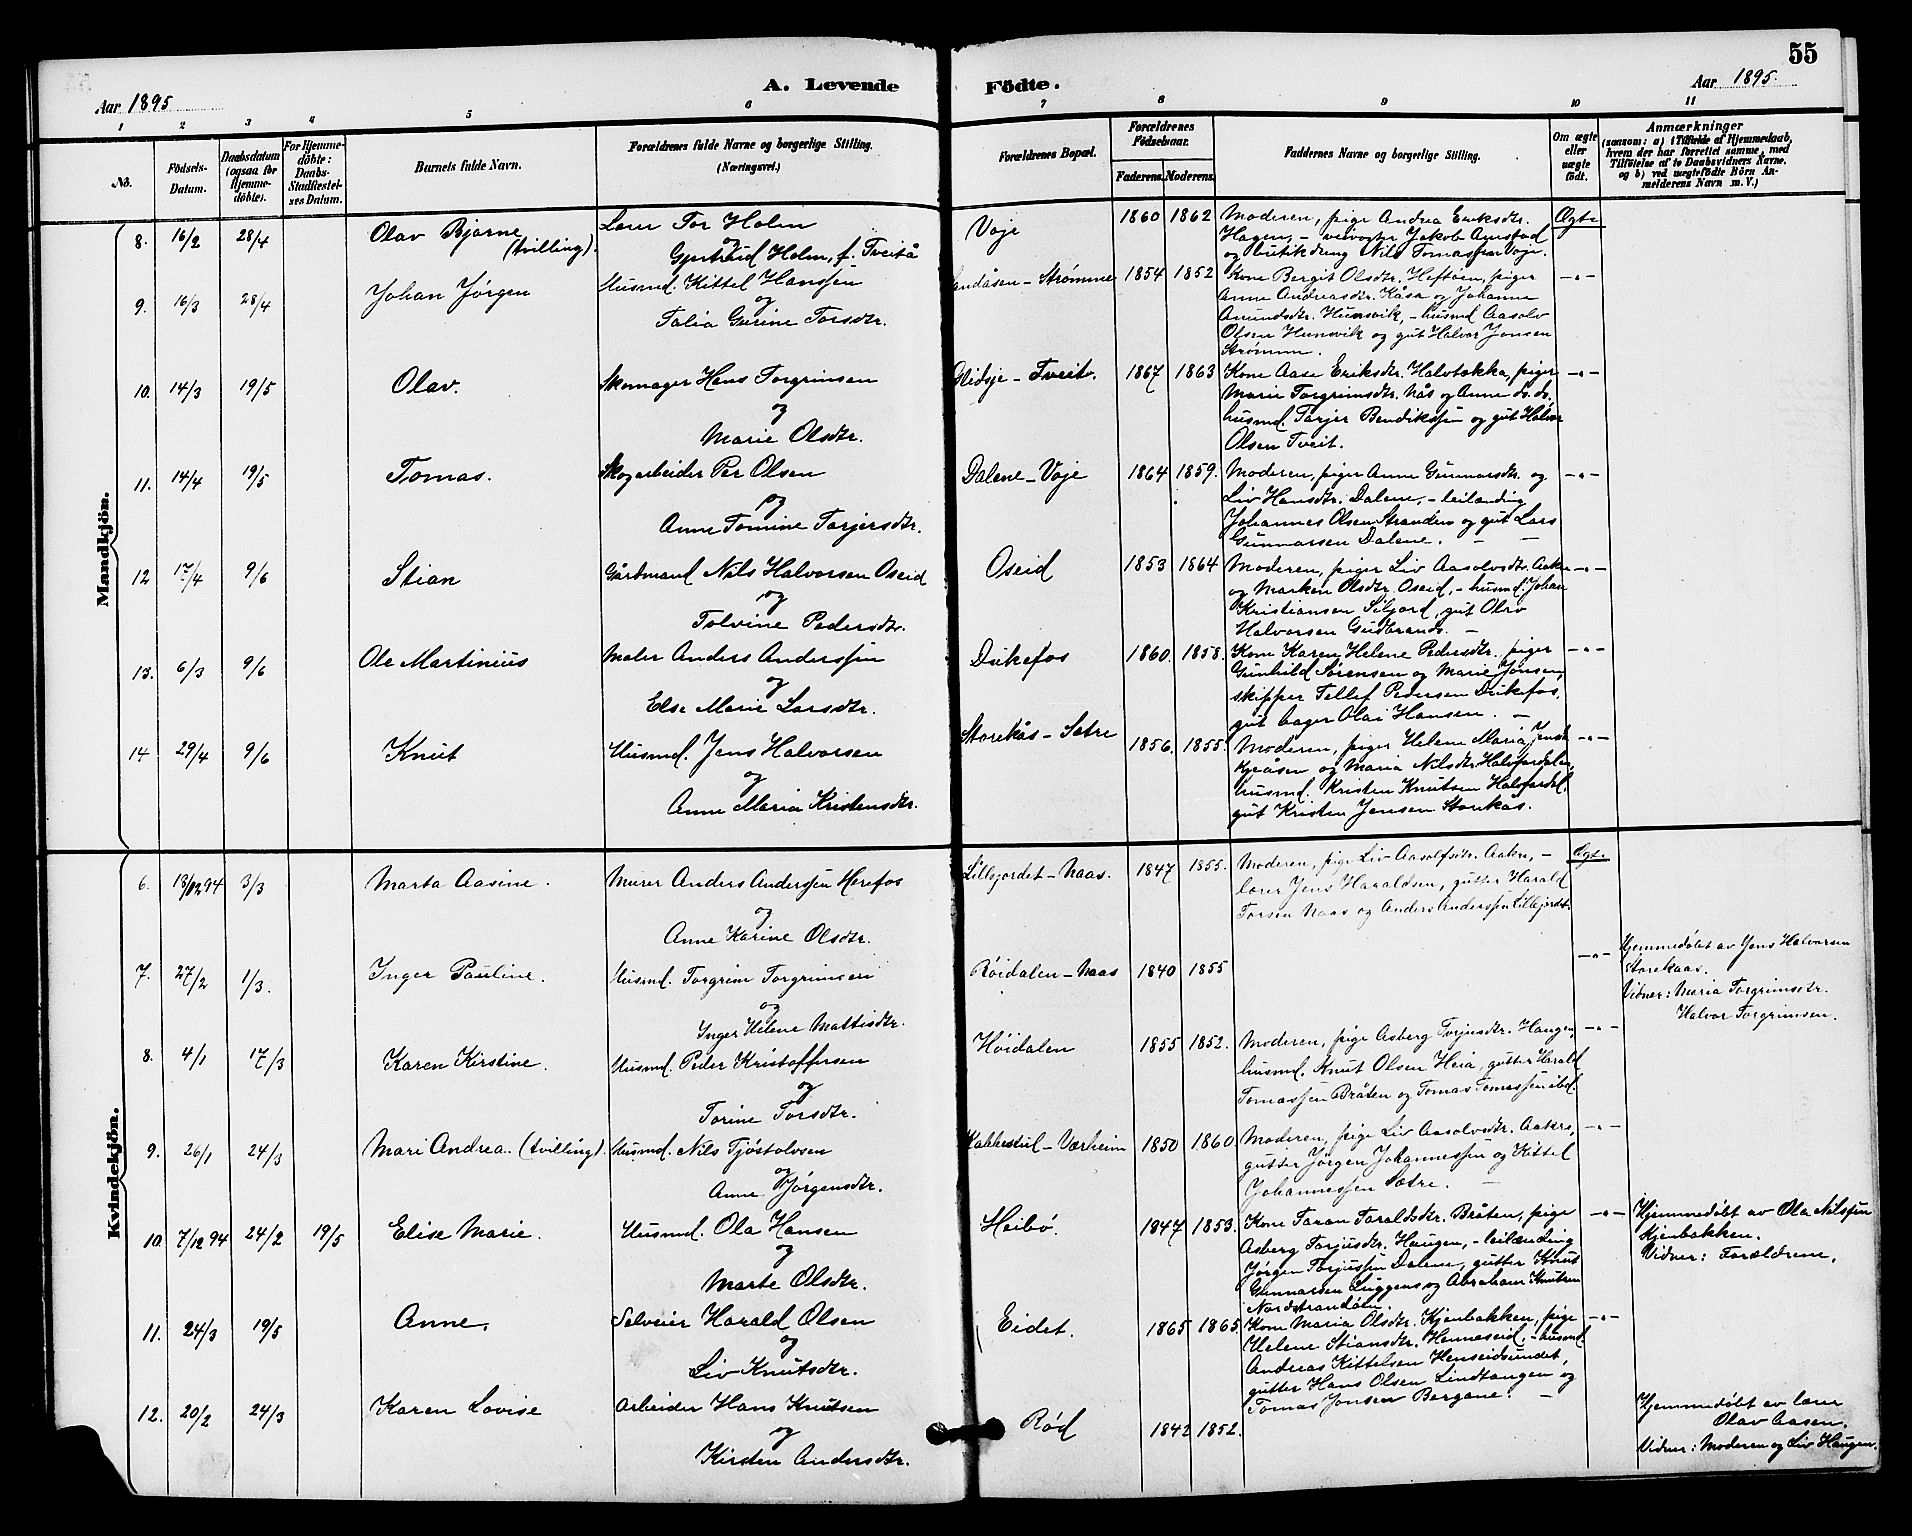 55
A. Levende Födte.
Aar 1895
Aar 1895.
1 2 3 4 5 6 7 8 9 10 11
No.
Födsels-Datum.
Daabsdatum (ogsaa for Hjemmedöbte).
For Hjemmedöbte: Daabs-Stadfæstelses Datum.
Barnets fulde Navn.
Forældrenes fulde Navne og borgerlige Stilling.
(Næringsvei.)
Forældrenes Bopæl.
Forældrenes Födselsaar.
Faderens. Moderens.
Faddernes Navne og borgerlige Stilling.
Om ægte eller uægte födt.
Anmærkninger
(saasom: a) i Tilfælde af Hjemmedaab, hvem der har forrettet samme, med Tilföielse af to Daabsvidners Navne, og b) ved uægtefödte Börn Anmelderens Navn m. V.)
Mandkjön.
8. 16/2 28/4 Olav Bjarne (tvilling). Lærer Tor Holm og Gjertrud Holm, f. Tveitå Voje 1860 1862 Ægte
Moderen, pige Andrea Eriksdtr.
Hagen, – veivogter Jakob
og butikdreng Nils Tomassen Voje.
9. 16/3 28/4 Johan Jörgen Husmd. Kittel Hanssen og Talia Gurine Torsdtr. – Strömme 1854 1852 –"–
Kone Bergit Olsdtr. Heftöen, piger
Anne Andreasdtr. Kåsa og Johanne
Amundsdtr. Hunsvik, – husmd Aasolv
Olsen Hunsvik og gut Halvor Jonsen
Strömme.
10. 14/3 19/5 Olav. Skomager Hans Torgrimsen og Marie Olsdtr. – Tveit. 1867 1863 –"–
Kone Aase Eriksdtr. Halvtakka, piger
Marie Torgrimsdtr. Nås og Anne ds. ds.
husmd. Tarjer Bendikssen og gut Halvor
Olsen Tveit.
11. 14/4 19/5 Tomas. Skogarbeider Per Olsen og Anne Tomine Tarjersdtr. Dalene – Voje 1864 1859. –"–
Moderen, piger Anne Gunnarsdtr. og
Liv Hansdtr. Dalene, – leilænding
Johannes Olsen Stranden og gut Lars
Gunnarsen Dalene. – –
12 17/4 9/6 Stian Gårdmand Nils Halvorsen Oseid og Tolvine Pedersdtr. Oseid 1853 1864 –"–
Moderen, piger Liv Aasolvsdtr. Aakre
og Marken Olsdtr. Oseid, – husmd. Johan
Kristiansen Siljord, gut Olav
Halvorsen Gudbrands. –
13. 6/3 9/6 Ole Martinius Maler Anders Anderssen og Else Marie Larsdtr. Dukefos 1860. 1858. –"–
Kone Karen Helene Pedersdtr. piger
Gunhild Sörensen og Marie Jonsen,
skipper Tellef Pedersen Dukefos,
gut Aager Olai Hansen. –
14 29/4 9/6 Knut Husmd. Jens Halvorsen og Anne Maria Kristensdtr. Storekås – Sætre 1856. 1855. –"–
Moderen, piger Helene Maria Jensdtr.
og Maria Nilsdtr. Halvfardalen,
husmd. Kristen Knutsen Halvfardal,
gut Kristen Jensen Storekås.
Kvindekjön.
6. 13/12 94 3/3 Marta Aasine. Murer Anders Anderssen Herefos og Anne Karine Olsdtr. Lillejordet – Naas. 1847 1855. Ægte
Moderen, pige Liv Aasolfsdtr. Aakre, –
lærer Jens Haraldsen, gutter Harald
Torsen Naas og Anders Anderssen Lillejordet.
7. 27/2 1/3. Inger Pauline. Husmd. Torgrim Torgrimsen og Inger Helene Mattisdtr. Röidalen – Naas 1840 1855 –"–
Hjemmedöbt av Jens Halvorsen
Storekaas.
Vidner: Maria Torgrimsdtr.
Halvor Torgrimsen.
8. 4/1 17/3 Karen Kirstine. Husmd. Peder Kristoffersen og Torine Torsdtr. Höidalen 1855 1852. –"–
Moderen, pige Asberg Torjusdtr. Haugen,
husmd. Knut Olsen Heia, gutter Harald
Tomassen Bråten og Tomas Tomassen ibd.
9. 26/1 24/3 Mari Andrea. (tvilling). Husmd. Nils Tjöstolvsen og Anne Jörgensdtr. Kabbestul – Værheim 1850 1860 –"–
Moderen, pige Liv Aasolvsdtr. Aakre,
gutter Jörgen Johannessen og Kittel
Johannessen Sætre. –
10. 7/12 94 24/2 19/5 Elise Marie. Husmd. Ola Hansen og Marte Olsdtr. Heibö. 1847 1853. –"–
Kone Taran Taraldsdtr. Bråten, pige
Asberg Torjusdtr. Haugen, – leilænding
Jörgen Torjussen Dalene, gutter Knut
Gunnarsen Luggens og Abraham Knutsen
Nordstrandöen.
Hjemmedöbt av Ola Nilssen
Kjenbakken.
Vidner: Forældrene.
11. 24/3 19/5 Anne. Selveier Harald Olsen og Liv Knutsdtr. Eidet. 1865 1865. –"–
Kone Maria Olsdtr. Kjenbakken, pige
Helene Stiansdtr. Henneseid, – husmd.
Andreas Kittelsen Henseidsundet,
gutter Hans Olsen Lindtangen og
Tomas Jonsen Bergane. –
12. 20/2 24/3 Karen Lovise Arbeider Hans Knutsen og Kirsten Andersdtr. Röd 1842 1852.
Hjemmedöbt av lærer
Olav Aasen.
Vidner: Moderen og Liv Haugen.